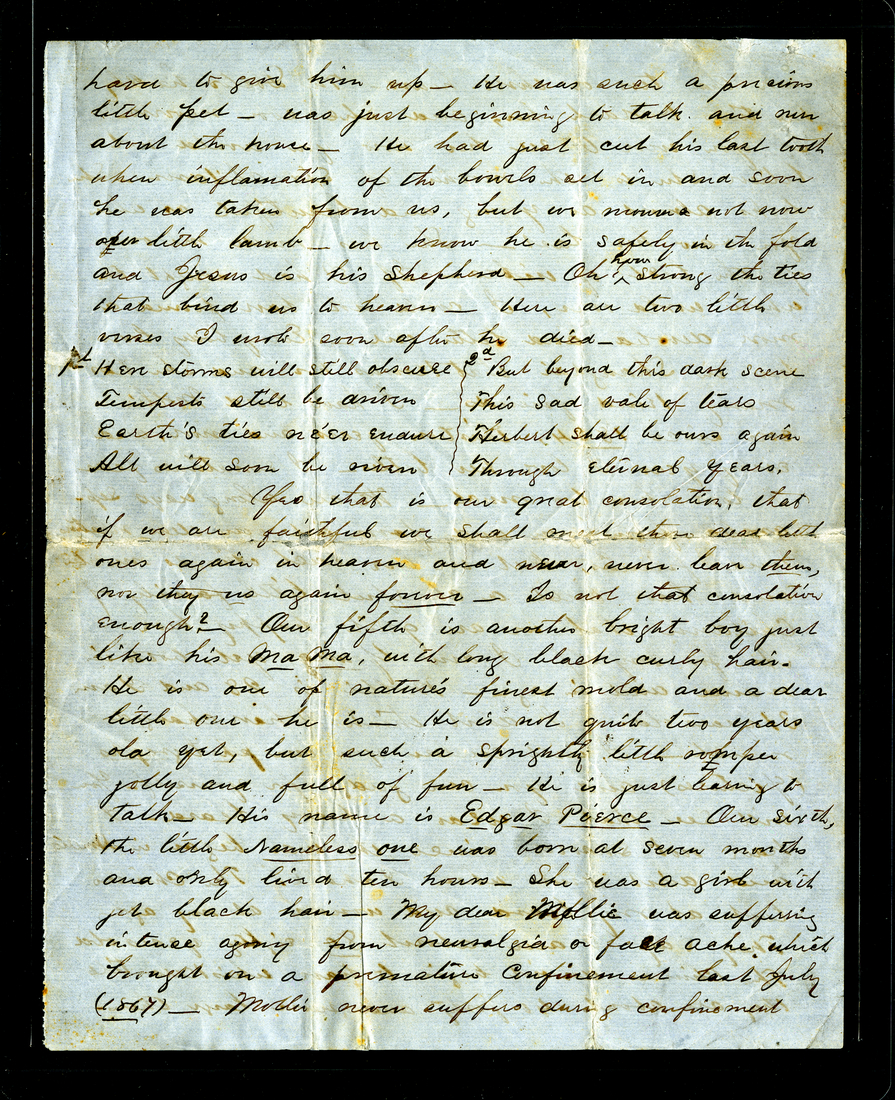 hard to give him up — He was such a precious
little pet — was just beginning to talk. and run
about the house — He had just cut his last tooth
when inflamation of the bowels set in and soon
he was taken from us, but we mourn not now
our little lamb — we know he is safely in the fold
and Jesus is his shepherd — Oh, how strong the ties
that bind us to heaven — Here are two little
verses I wrote soon after he died —
1st Here storms will still obscure
Tempests still be driven
Earth's ties ne'er endure
All will soon be riven
2d But beyond this dark scene
This sad vale of tears
Herbert shall be ours again
Through eternal years.
Yes that is our great consolation, that
if we are faithful we shall meet those dear little
ones again in heaven and never, never leave them,
nor they us again forever — Is not that consolation
enough? — Our fifth is another bright boy just
like his MaMa, with long black curly hair.
He is one of nature's finest mold and a dear
little one he is — He is not quite two years
old yet, but such a sprightly little romper
jolly and full of fun — He is just learing to
talk — His name is Edgar Pierce — Our sixth,
the little Nameless one was born at seven months
and only lived ten hours — She was a girl with
jet black hair — My dear Mollie was suffering
intense agony from neuralgia or face ache which
brought on a premature confinement last July
(1867) — Mollie never suffers during confinement